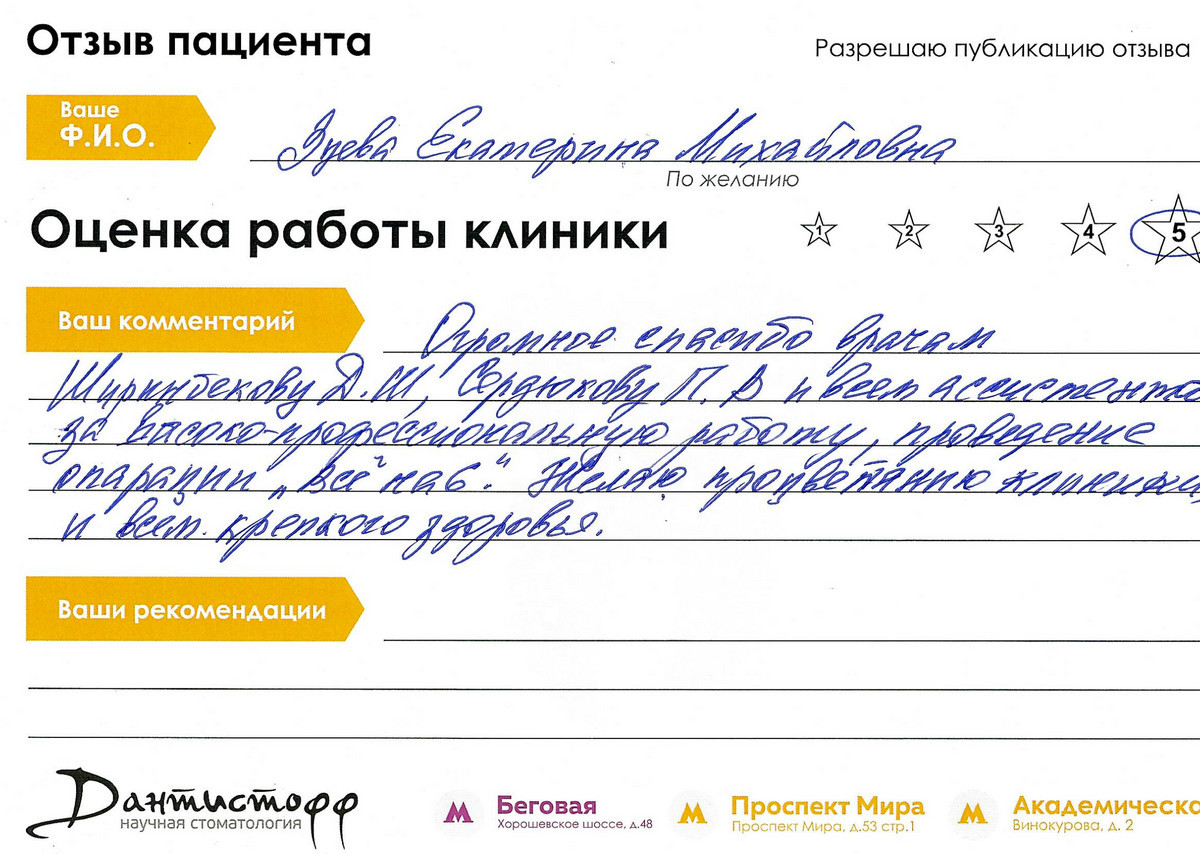 Отзыв пациента
Разрешаю публикацию отзыва
Ваше
Ф.И.О.
Зуева Екатерина Михайловна
По желанию
Оценка работы клиники
1 2 3 4 5
Ваш комментарий
Огромное спасибо врачам
Ширинбекову Д.Ш, Сердюкову П. В и всем ассистента
за высоко-профессиональную работу, проведение
опарации „Всё на 6". Желаю процветанию клиники,
и всем крепкого здоровья.
Ваши рекомендации
Дантистофф
научная стоматология
М Беговая
Хорошевское шоссе, д.48
М Проспект Мира
Проспект Мира, д.53 стр.1
М Академическа
Винокурова, д. 2